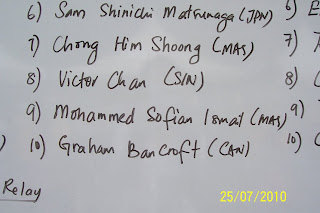 6) Sam Shinichi Matsunaga (JPN) 6) E
7) Chong Him Shoong (MAS) 7)
8) Victor Chan (SIN) 8) C
9) Mohammed Sofian Ismail (MAS) 9)
) 10) Graham Bancroft (CAN) 10) C
Relay
25/07/2010